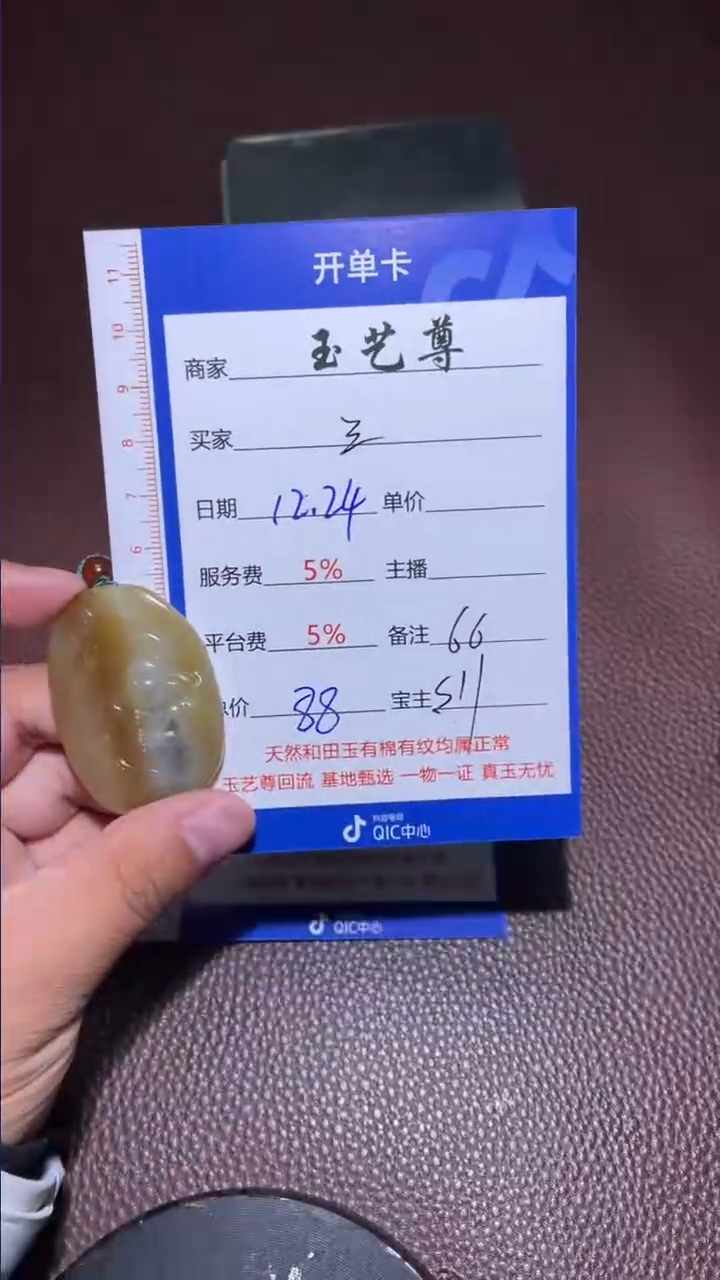 开单卡
商家 玉艺尊
买家 三
日期 12.24 单价
服务费 5% 主播
平台费 5% 备注 66
总价 88 宝主
天然和田玉有棉有纹均属正常
玉艺尊回流 基地甄选 一物一证 真玉无忧
抖音电商
QIC中心
QIC中心
11
10
9
8
7
6